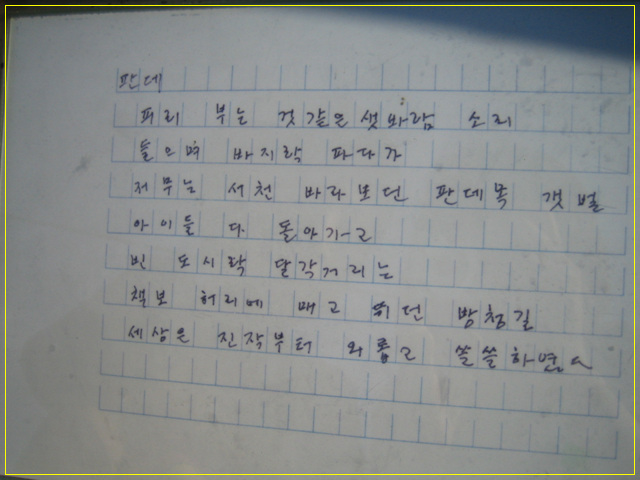 판데
피리 부는 것 같은 샛바람 소리
들으며 바지락 파다가
저무는 서천 바라보던 판데목 갯벌
아이들 다 돌아가고
빈 도시락 달각거리는
책보 허리에 매고 뛰던 방청길
세상은 진작부터 외롭고 쓸쓸하였다